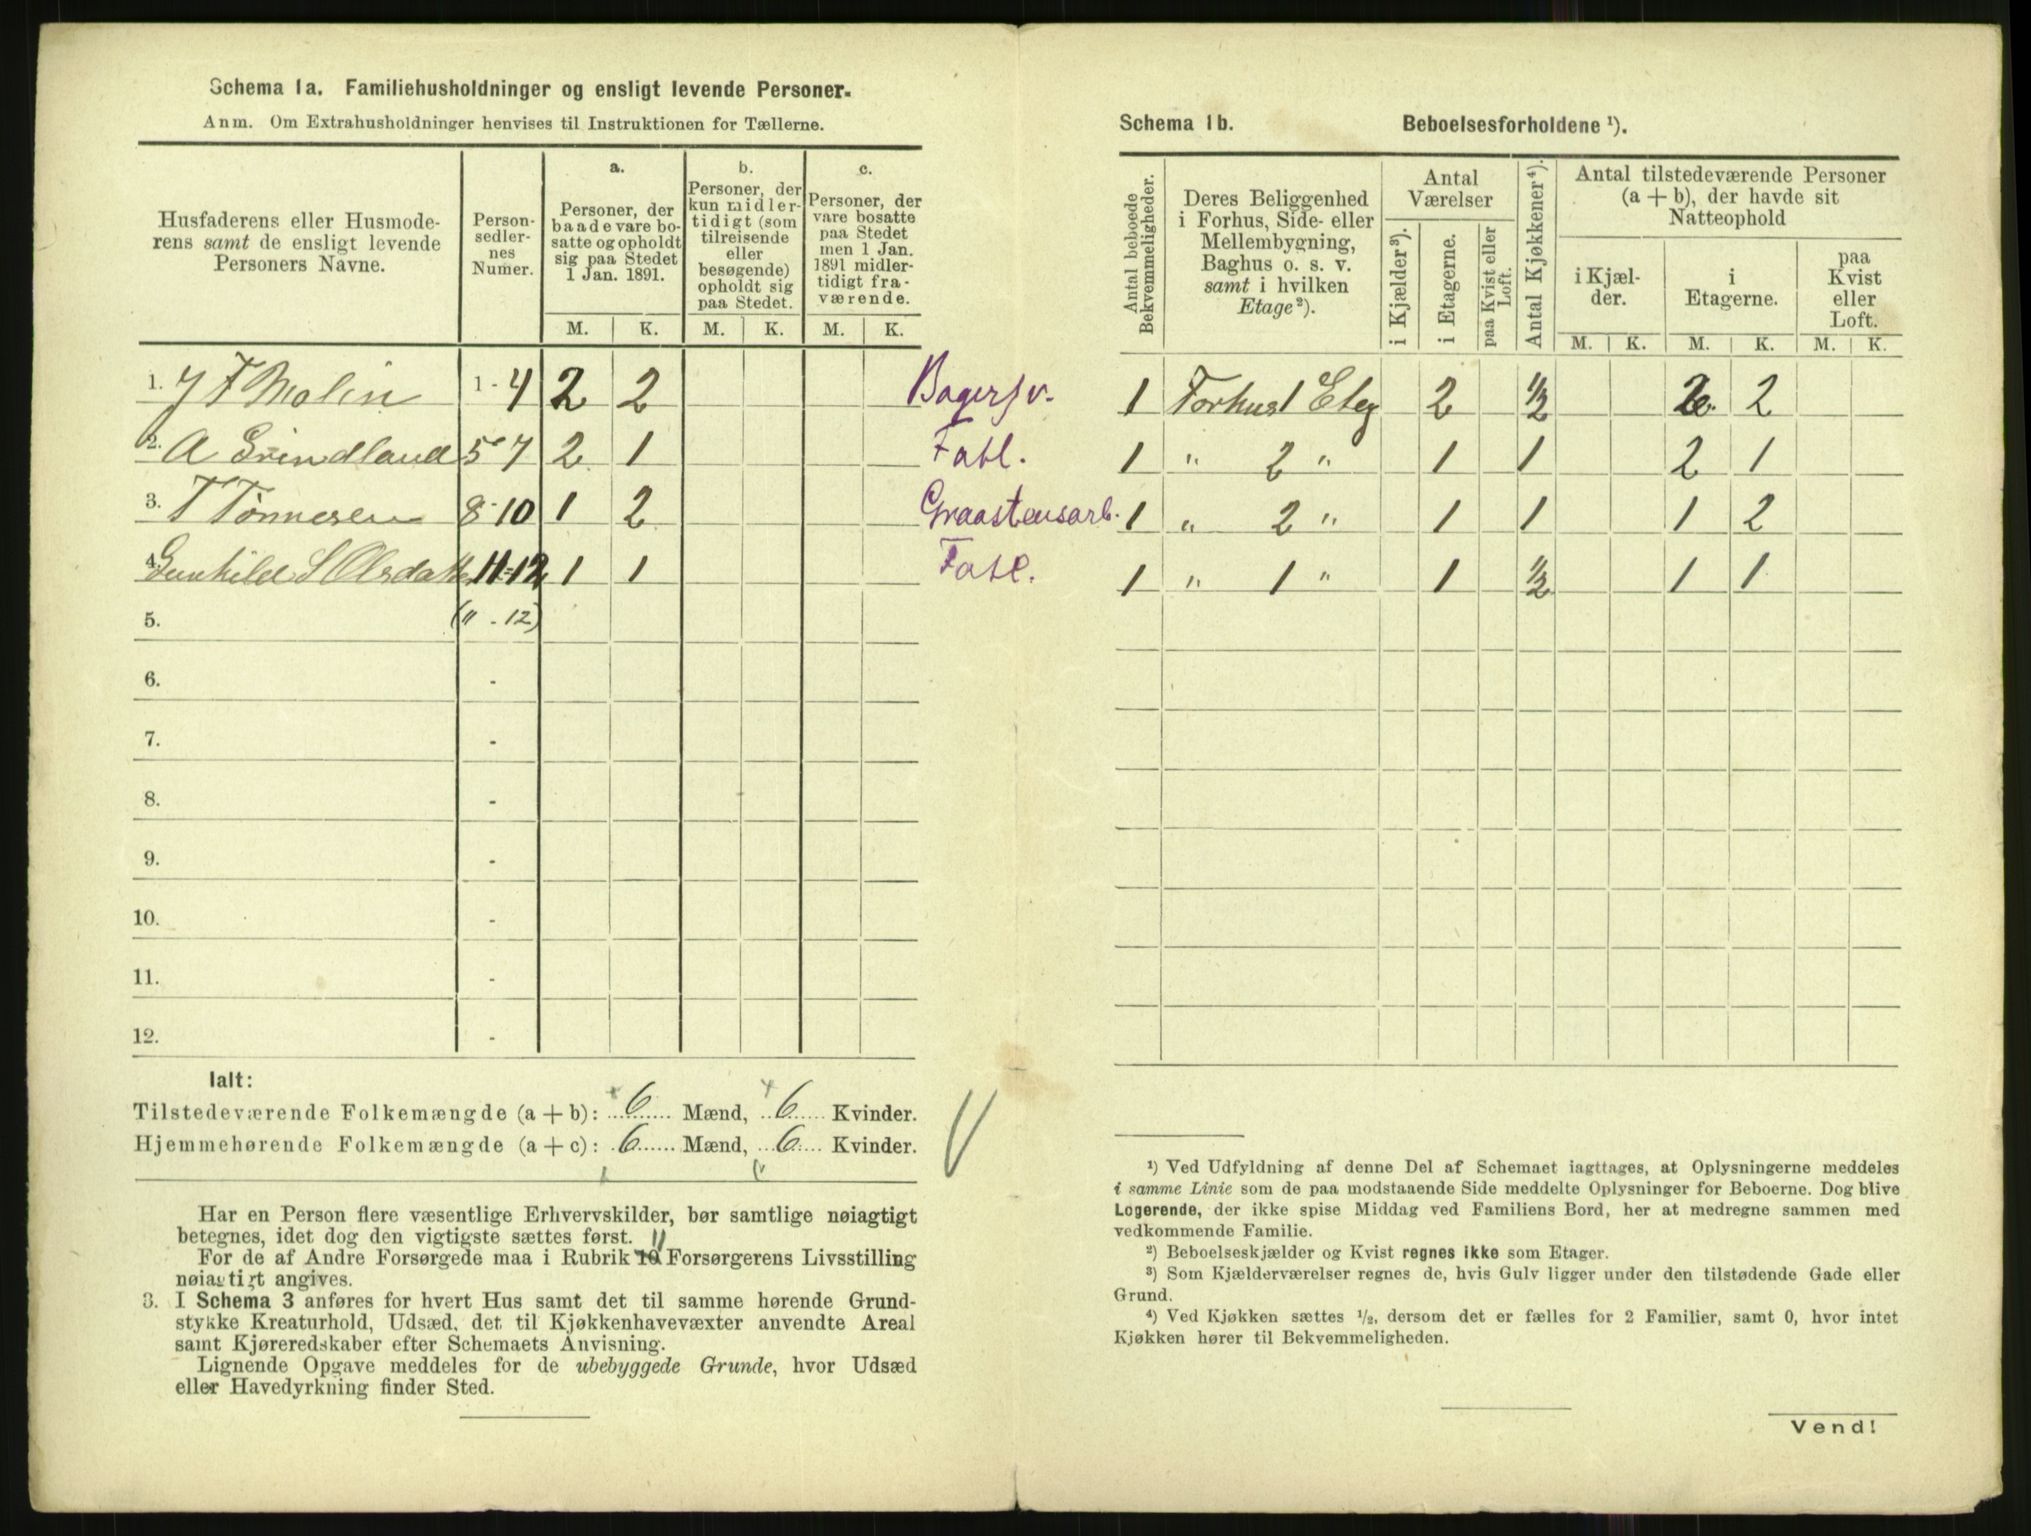 Schema 1a. Familiehusholdninger og ensligt levende Personer.
Anm. Om Extrahusholdninger henvises til Instruktionen for Tællerne.
Husfaderens eller Husmoderens samt de ensligt levende Personers Navne.
Personsedlernes Numer.
a.
Personer, der baade vare bosatte og opholdt sig paa Stedet 1 Jan. 1891.
b.
Personer, der kun midlertidigt (som tilreisende eller besøgende) opholdt sig paa Stedet.
c.
Personer, der vare bosatte paa Stedet men 1 Jan. 1891 midlertidigt fraværende.
M. K. M. K. M. K.
1. J F Molin 1 - 4 2 2 Bagersv.
2. A Grindland 5 - 7 2 1 Fatl.
3. T Tønnesen 8 - 10 1 2 Graastensarb.
4. Gunhild S Olsdatter 11-12 1 1 Fatl.
5. (11 - 12)
6. -
7. -
8. -
9. -
10. -
11. -
12. -
Ialt:
Tilstedeværende Folkemængde (a + b): 6 Mænd, 6 Kvinder.
Hjemmehørende Folkemængde (a + c): 6 Mænd, 6 Kvinder.
Har en Person flere væsentlige Erhvervskilder, bør samtlige nøiagtigt
betegnes, idet dog den vigtigste sættes først.
For de af Andre Forsørgede maa i Rubrik 10 11 Forsørgerens Livsstilling
nøiagtigt angives.
3. I Schema 3 anføres for hvert Hus samt det til samme hørende Grund-
stykke Kreaturhold, Udsæd, det til Kjøkkenhavevæxter anvendte Areal
samt Kjøreredskaber efter Schemaets Anvisning.
Lignende Opgave meddeles for de ubebyggede Grunde, hvor Udsæd
eller Havedyrkning finder Sted.
Schema 1b. Beboelsesforholdene ¹).
Antal beboede Bekvemmeligheder.
Deres Beliggenhed i Forhus, Side- eller Mellembygning, Baghus o. s. v. samt i hvilken Etage ²).
Antal Værelser
i Kjælder ³).
i Etagerne.
paa Kvist eller Loft.
Antal Kjøkkener ⁴).
Antal tilstedeværende Personer (a + b), der havde sit Natteophold
i Kjælder.
i Etagerne.
paa Kvist eller Loft.
M. K. M. K. M. K.
1 Forhus 1 Etag 2 ½ 2 2
1 " 2 " 1 1 2 1
1 " 2 " 1 1 1 2
1 " 1 " 1 ½ 1 1
¹) Ved Udfyldning af denne Del af Schemaet iagttages, at Oplysningerne meddeles
i samme Linie som de paa modstaaende Side meddelte Oplysninger for Beboerne. Dog blive
Logerende, der ikke spise Middag ved Familiens Bord, her at medregne sammen med
vedkommende Familie.
²) Beboelseskjælder og Kvist regnes ikke som Etager.
³) Som Kjælderværelser regnes de, hvis Gulv ligger under den tilstødende Gade eller
Grund.
⁴) Ved Kjøkken sættes ½, dersom det er fælles for 2 Familier, samt 0, hvor intet
Kjøkken hører til Bekvemmeligheden.
Vend!